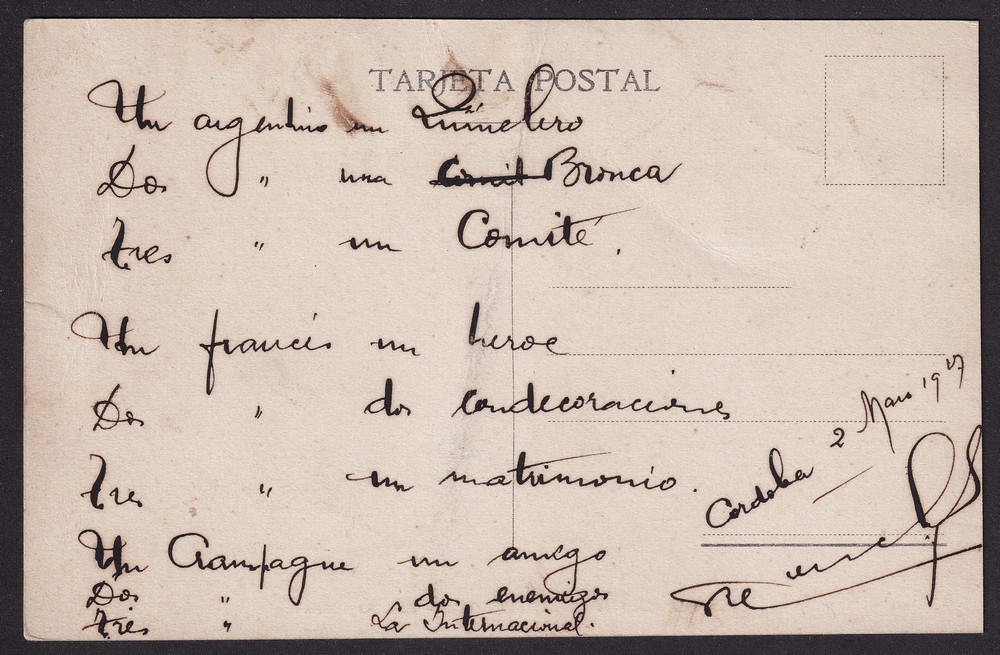 TARJETA POSTAL
Un argentino un Quimelero
Dos " una Comit Bronca
Tres " un Comité.
Un francés un heroe
Dos " dos condecoraciones
Tres " un matrimonio.
Cordoba 2 Maro 1927
Un Crampagne un amigo
Dos " dos enemigos
Tres " La Internacional.